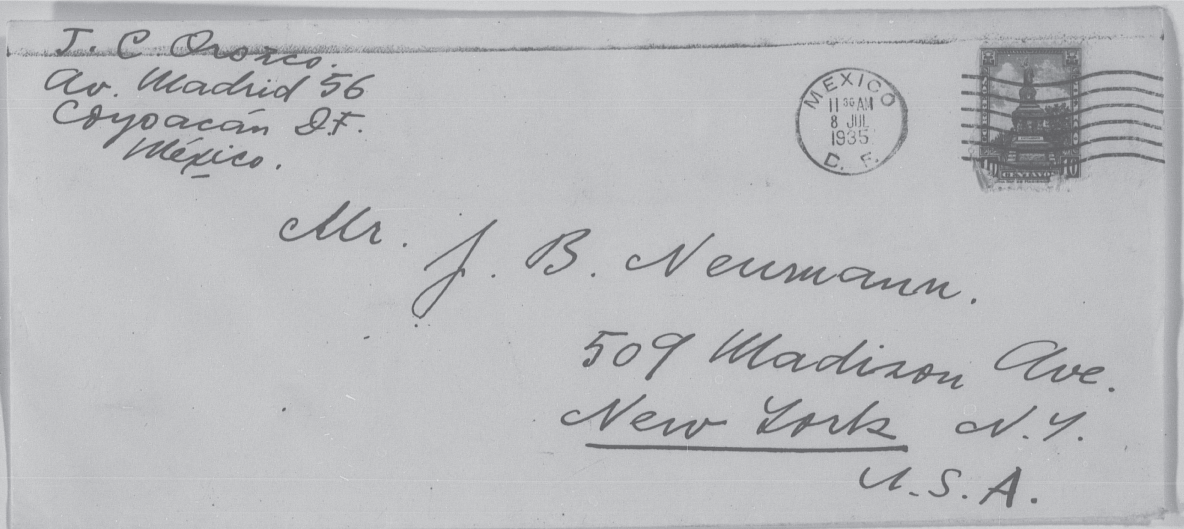 J. C. Orozco.
Av. Madrid 56
Coyoacán D.F.
México.
MEXICO
11 30 AM
8 JUL
1935
D. F.
10 CENTAVOS 10
Mr. J. B. Neumann.
509 Madison Ave.
New York N.Y.
U.S.A.